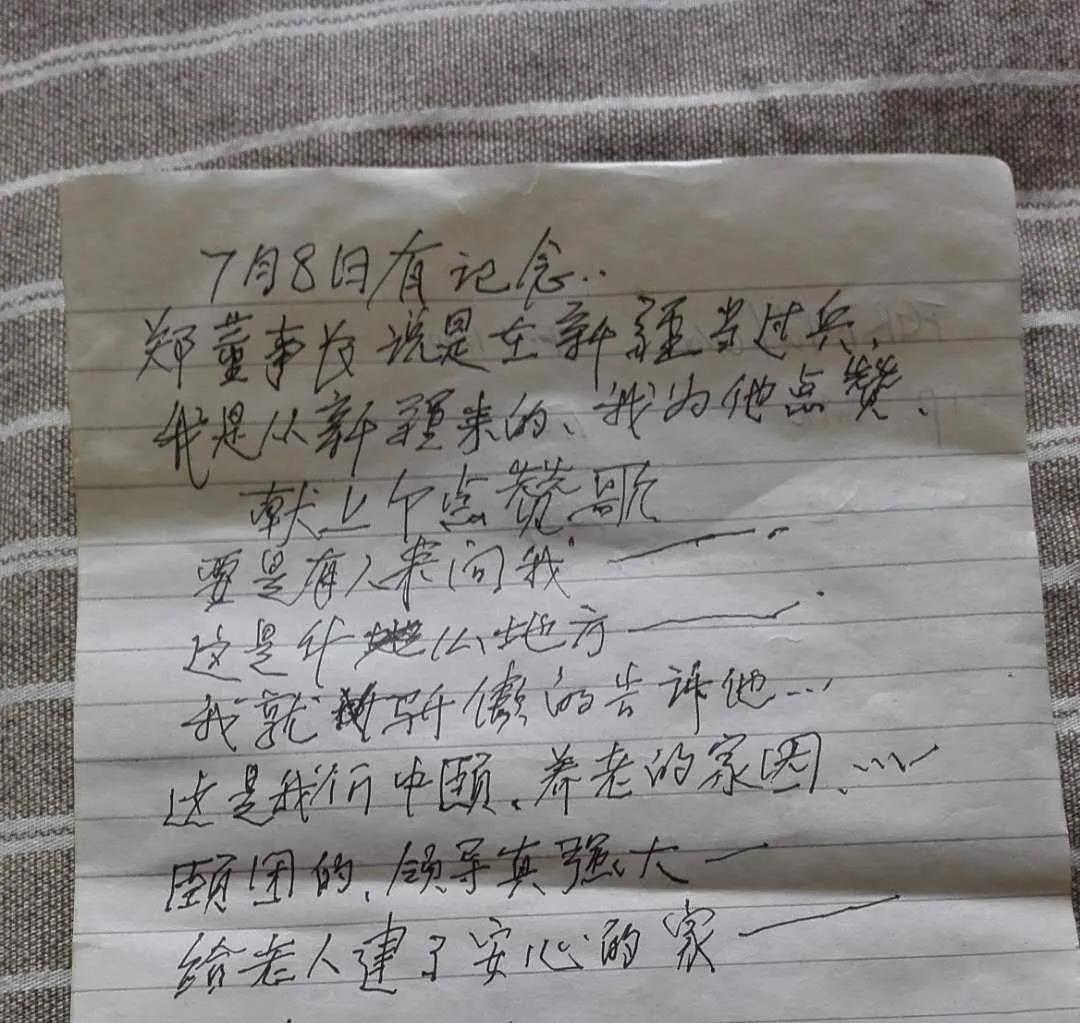 7月8日有记念..
郑董事长说是在新疆当过兵,
我是从新疆来的、我为他点赞、
献上个点赞歌
要是有人来问我
这是什么地方
我就的告诉他...
这是我们中颐、养老的家园、...
颐园的、领导真强大
给老人建了安心的家